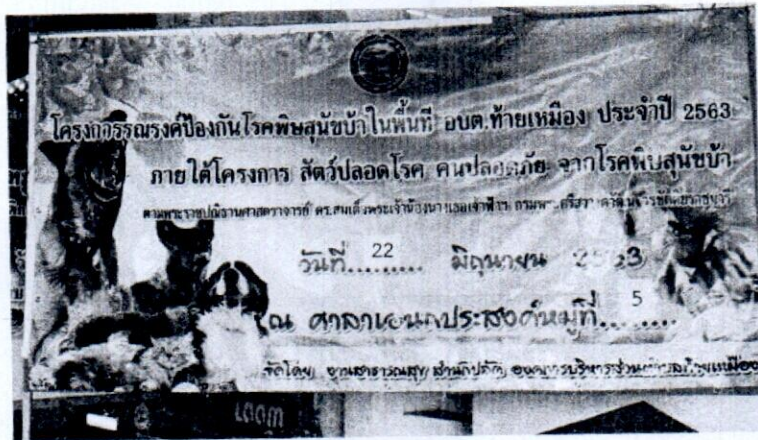 โครงการรณรงค์ป้องกันโรคพิษสุนัขบ้าในพื้นที่ อบต.ท้ายเหมือง ประจำปี 2563
ภายใต้โครงการ สัตว์ปลอดโรค คนปลอดภัย จากโรคพิษสุนัขบ้า
ตามพระราชปณิธานศาสตราจารย์ ดร.สมเด็จพระเจ้าน้องนางเธอเจ้าฟ้าฯ
วันที่ 22 มิถุนายน 2563
ณ ศาลาเอนกประสงค์หมู่ที่ 5
จัดโดย งานสาธารณสุข สำนักปลัด องค์การบริหารส่วนตำบลท้ายเหมือง